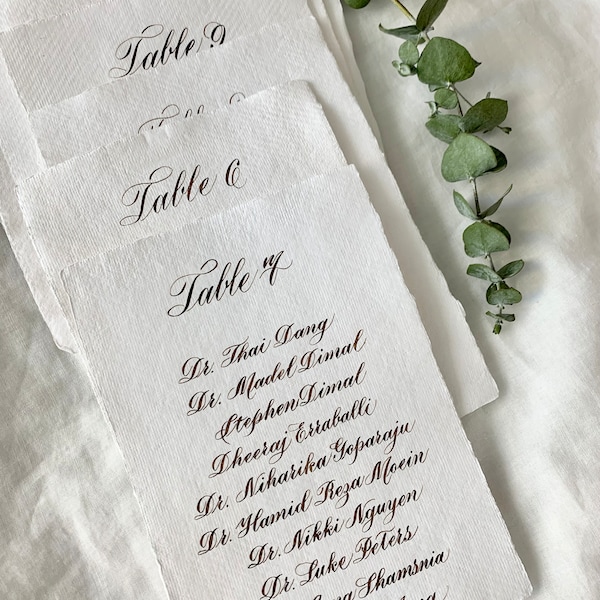 Table 9
Table
Table 6
Table
Dr. Thai Dang
Dr. Madel Dimal
Stephen Dimal
Dheeraj Erraballi
Dr. Niharika Goparaju
Dr. Hamid Reza Moein
Dr. Nikki Nguyen
Dr. Luke Peters
Shamsnia